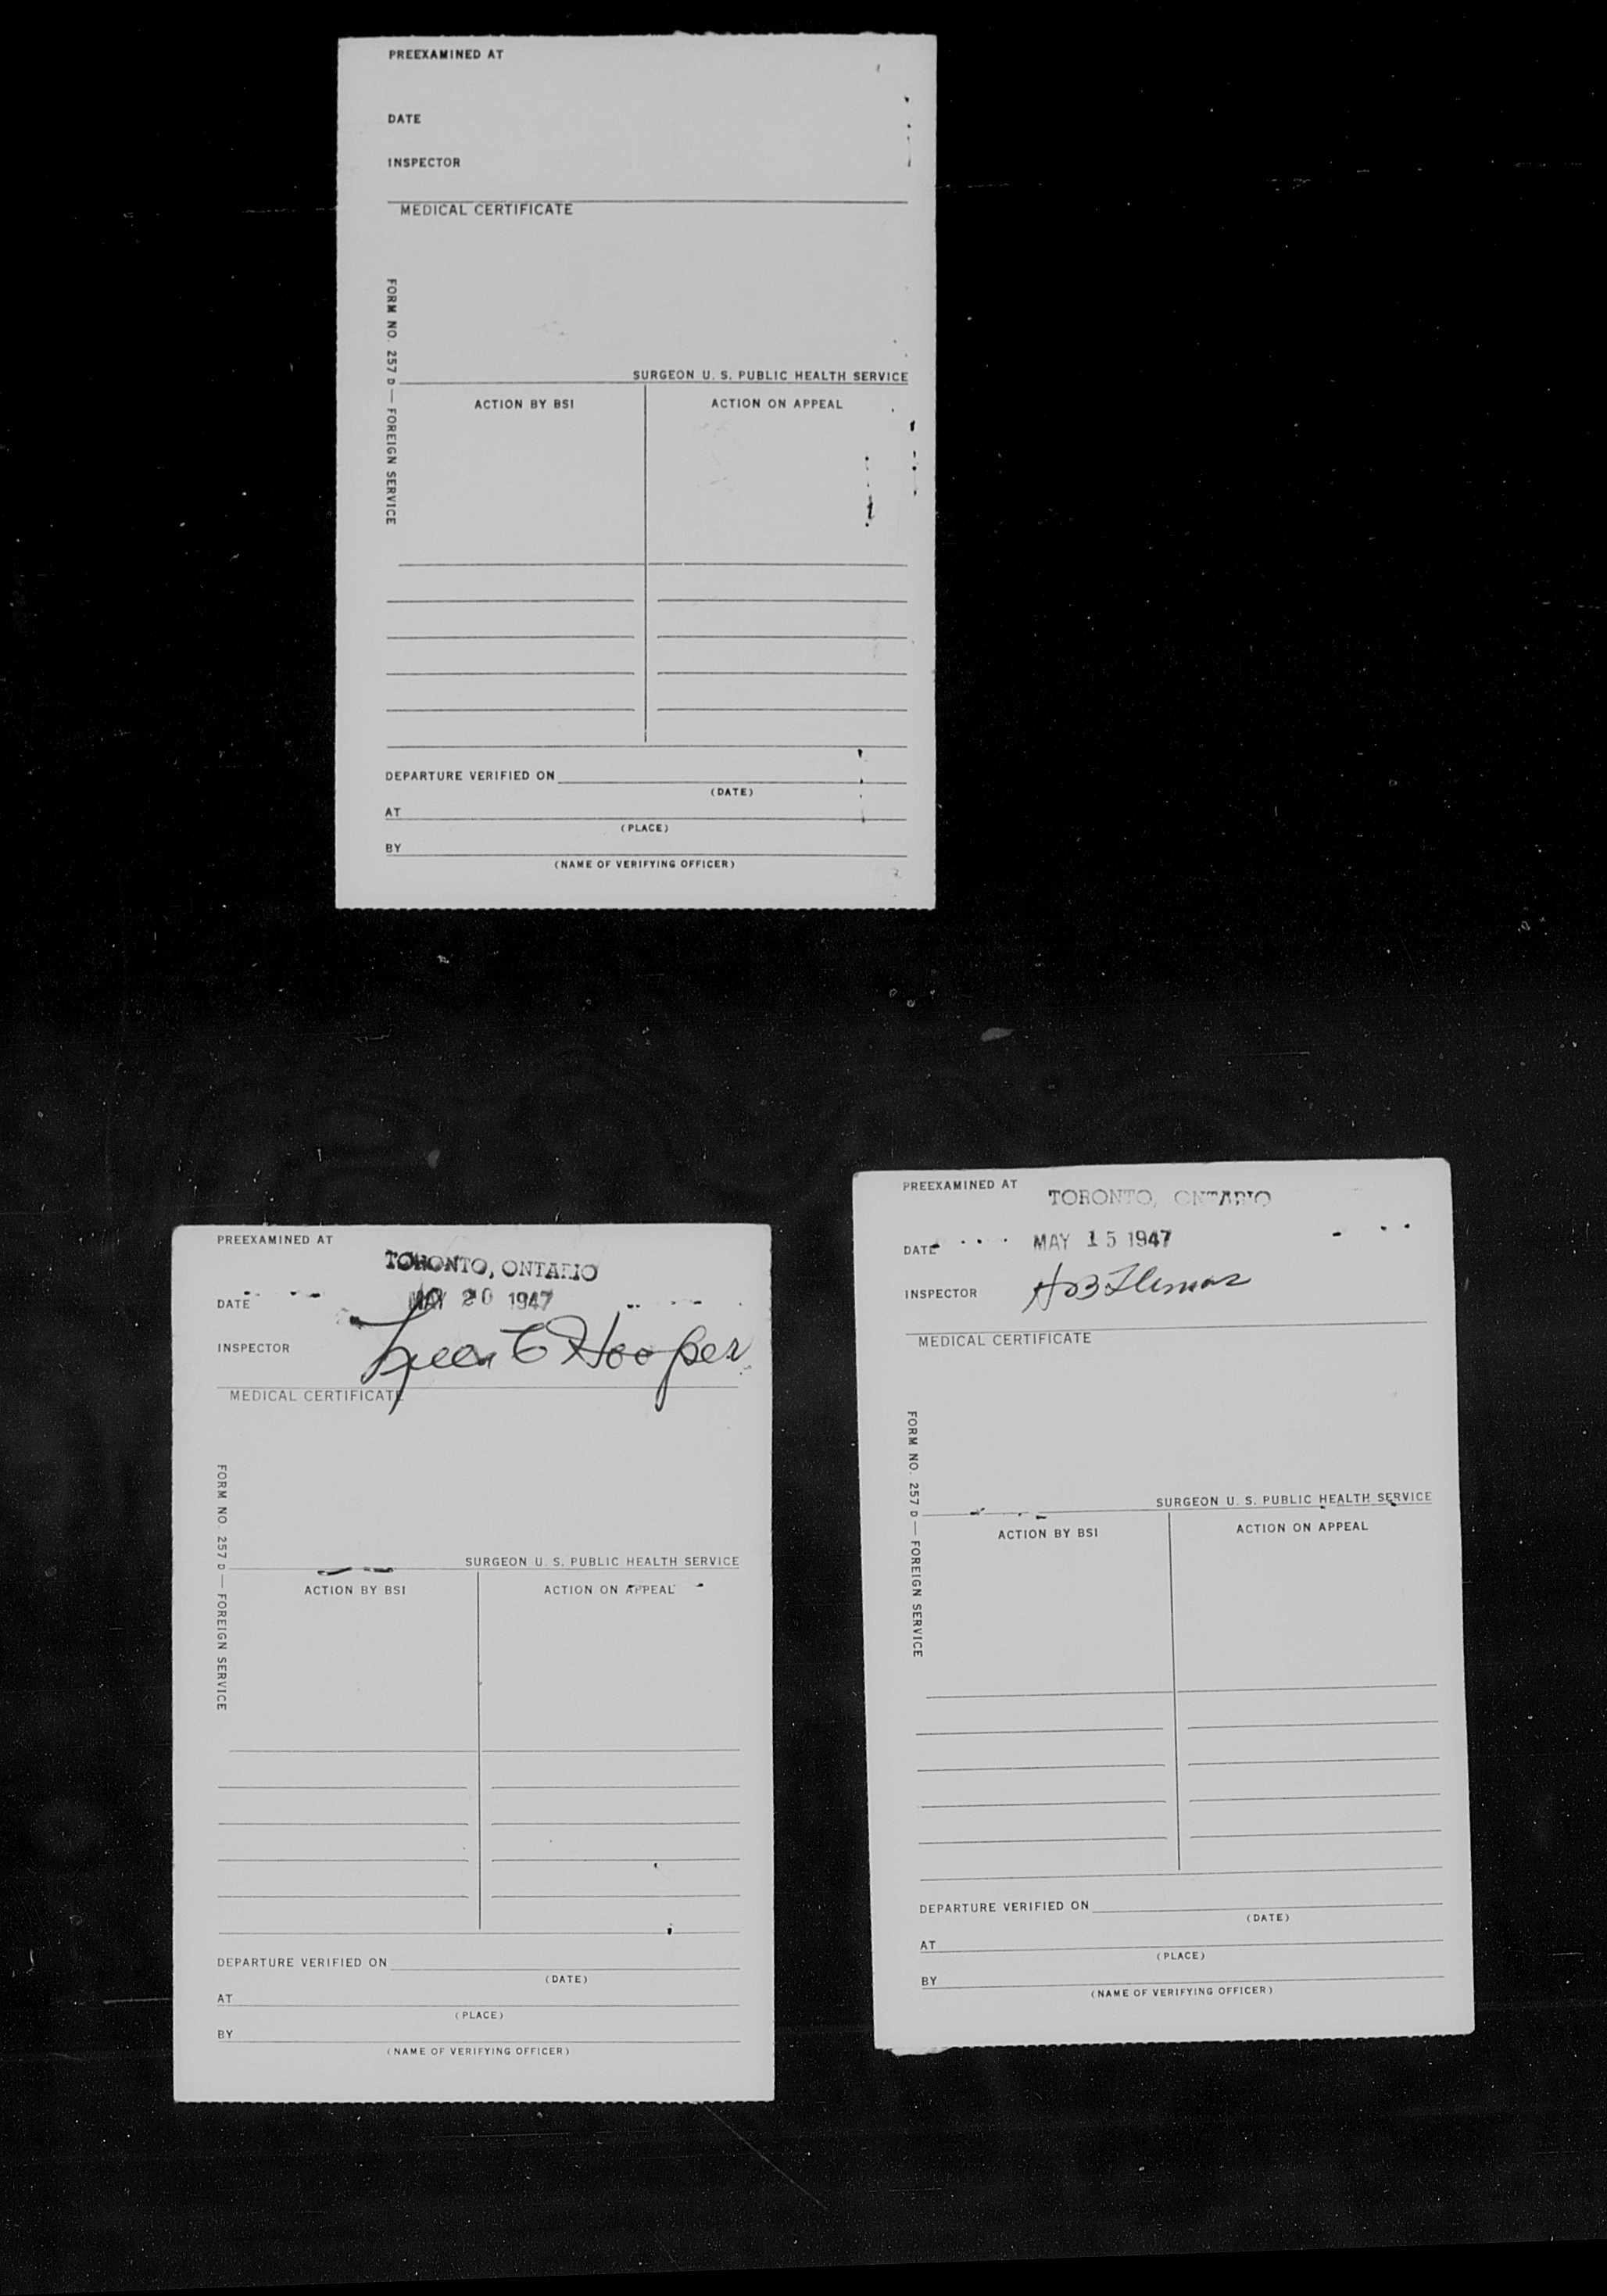 PREEXAMINED AT
DATE
INSPECTOR
MEDICAL CERTIFICATE
FORM NO. 257 D — FOREIGN SERVICE
SURGEON U. S. PUBLIC HEALTH SERVICE
ACTION BY BSI
ACTION ON APPEAL
DEPARTURE VERIFIED ON
(DATE)
AT
(PLACE)
BY
(NAME OF VERIFYING OFFICER)
PREEXAMINED AT
TORONTO, ONTARIO
DATE MAY 20 1947
INSPECTOR C Hooper
MEDICAL CERTIFICATE
FORM NO. 257 D — FOREIGN SERVICE
SURGEON U. S. PUBLIC HEALTH SERVICE
ACTION BY BSI
ACTION ON APPEAL
DEPARTURE VERIFIED ON
(DATE)
AT
(PLACE)
BY
(NAME OF VERIFYING OFFICER)
PREEXAMINED AT TORONTO, ONTARIO
DATE MAY 15 1947
INSPECTOR
MEDICAL CERTIFICATE
FORM NO. 257 D — FOREIGN SERVICE
SURGEON U. S. PUBLIC HEALTH SERVICE
ACTION BY BSI
ACTION ON APPEAL
DEPARTURE VERIFIED ON
(DATE)
AT
(PLACE)
BY
(NAME OF VERIFYING OFFICER)